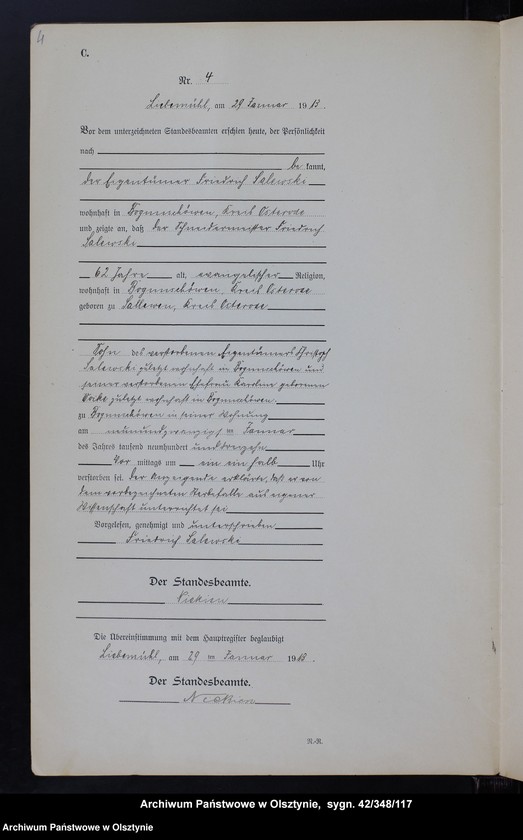 4
C.
Nr. 4
Liebemühl, am 29 Januar 1913.
Vor dem unterzeichneten Standesbeamten erschien heute, der Persönlichkeit
nach
be kannt,
der Eigentümer Friedrich Salewski
wohnhaft in Bogunschöwen, Kreis Osterode
und zeigte an, daß der Schneidermeister Friedrich
Salewski
62 Jahre alt, evangelischer Religion,
wohnhaft in Bogunschöwen, Kreis Osterode
geboren zu Sallewen, Kreis Osterode
Sohn des verstorbenen Eigentümers Christoph
Salewski zuletzt wohnhaft in Bogunschöwen und
seiner verstorbenen Ehefrau Karoline geborenen
zuletzt wohnhaft in Bogunschöwen
zu Bogunschöwen in seiner Wohnung
am neunundzwanzigsten Januar
des Jahres tausend neunhundert und dreizehn
Vor mittags um ein ein halb Uhr
verstorben sei. Der Anzeigende erklärte, daß er von
dem vorbezeichneten Sterbefalle aus eigener
Wissenschaft unterrichtet sei
Vorgelesen, genehmigt und unterschrieben
Friedrich Salewski
Der Standesbeamte.
Die Übereinstimmung mit dem Hauptregister beglaubigt
Liebemühl, am 29 ten Januar 1913.
Der Standesbeamte.
R.-R.
Archiwum Państwowe w Olsztynie, sygn. 42/348/117
Archiwum Państwowe w Olsztynie